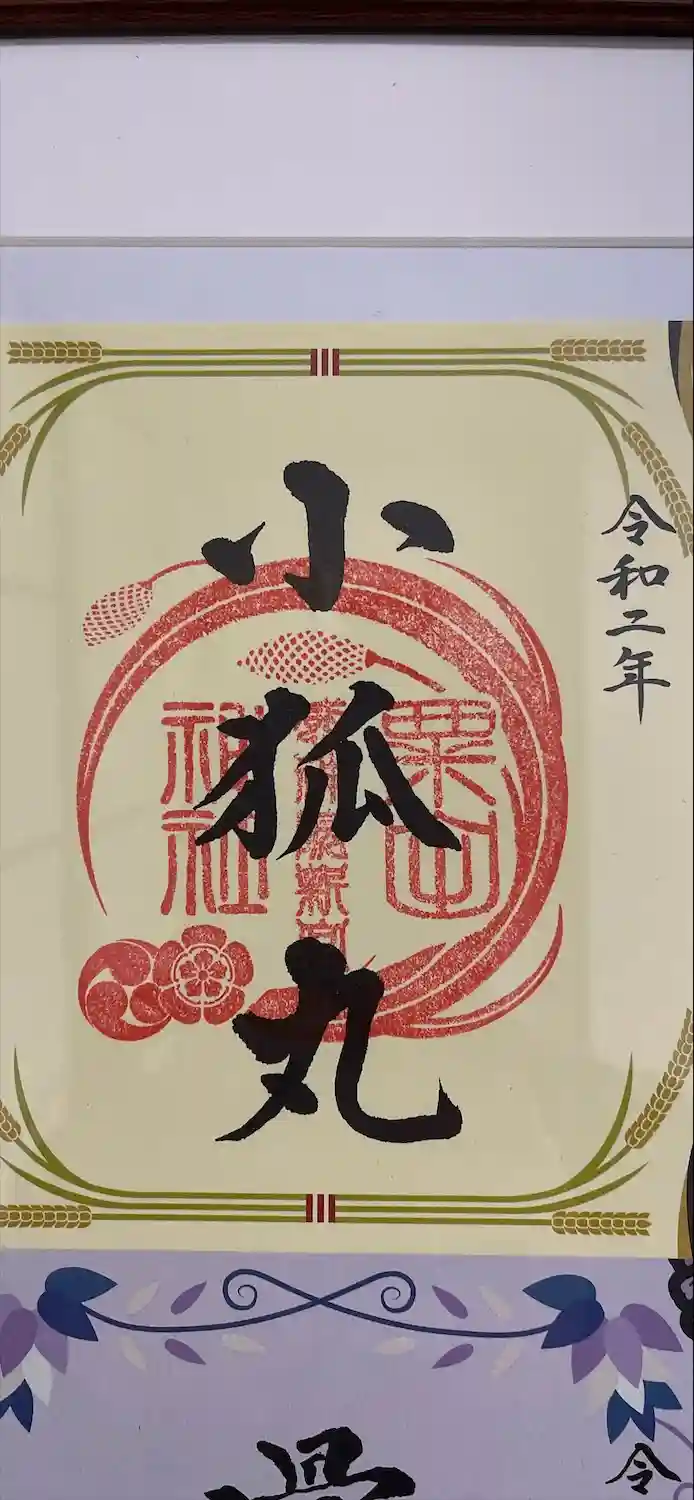 令和二年
小狐丸
粟田
神社
令